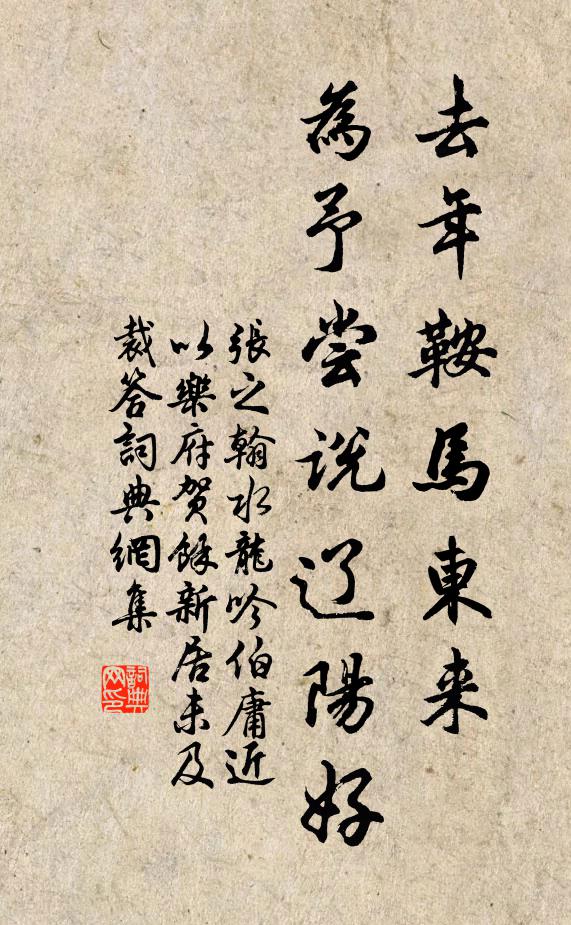 去年鞍馬東来
為予尝説辽陽好
張之翰水龍吟伯庸近
以樂府賀餘新居未及
裁答詞典網集
詞典网印